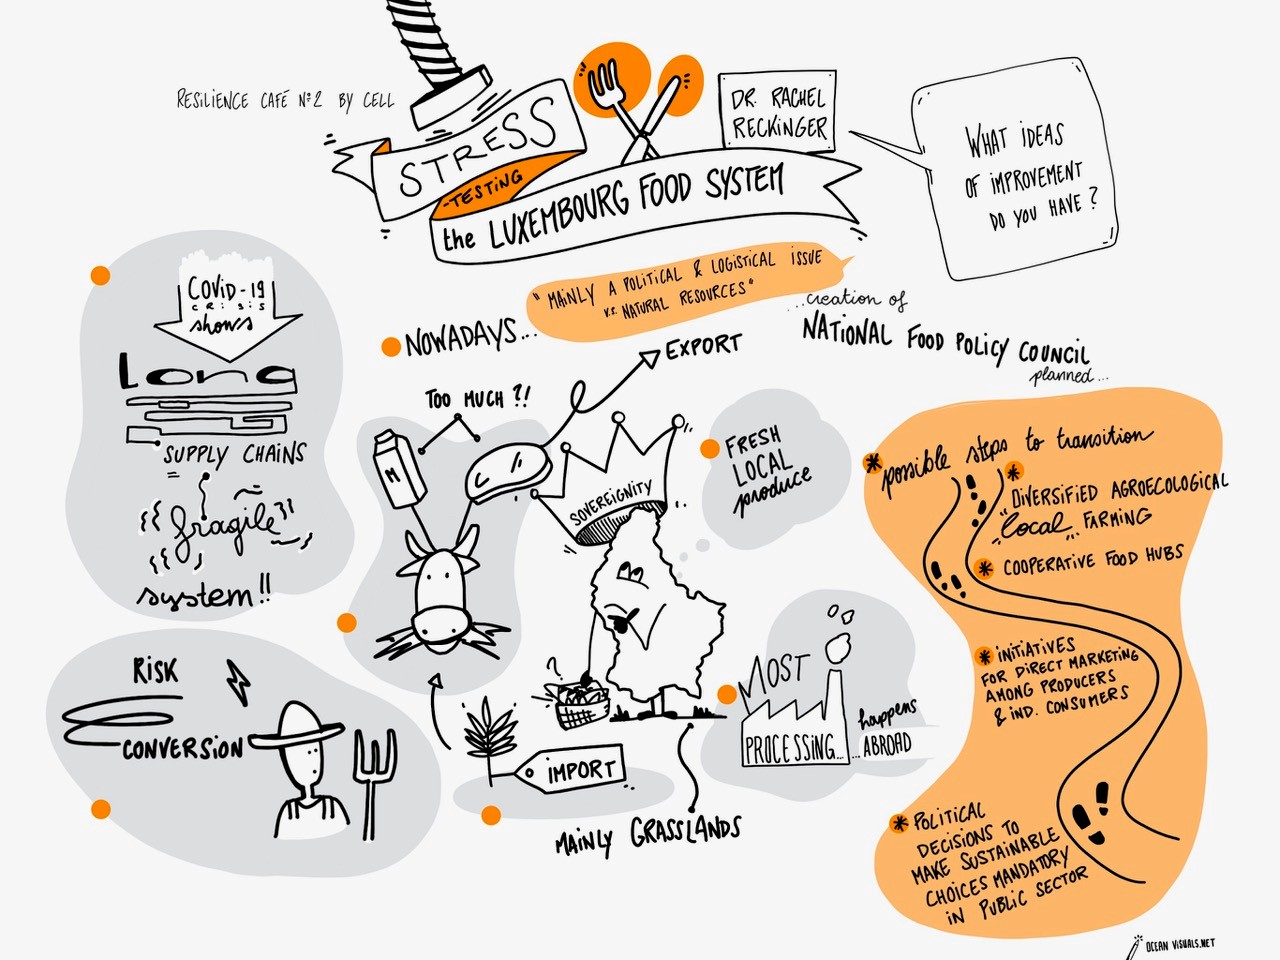 RESILIENCE CAFÉ Nº2 BY CELL
STRESS
-TESTING
the LUXEMBOURG FOOD SYSTEM
DR. RACHEL
RECKINGER
WHAT IDEAS
OF IMPROVEMENT
DO YOU HAVE?
"MAINLY A POLITICAL & LOGISTICAL ISSUE
v.s. NATURAL RESOURCES"
...creation of
NATIONAL FOOD POLICY COUNCIL
planned...
COVID-19
CRISIS
shows
Long
SUPPLY CHAINS
fragile
system!!
NOWADAYS...
EXPORT
TOO MUCH ?!
M
SOVEREIGNITY
FRESH
LOCAL
produce
MOST
PROCESSING...
happens
...ABROAD
RISK
CONVERSION
?
IMPORT
MAINLY GRASSLANDS
* possible steps to transition
* DIVERSIFIED AGROECOLOGICAL
"local" FARMING
* COOPERATIVE FOOD HUBS
* INITIATIVES
FOR DIRECT MARKETING
AMONG PRODUCERS
& IND. CONSUMERS
* POLITICAL
DECISIONS TO
MAKE SUSTAINABLE
CHOICES MANDATORY
IN PUBLIC SECTOR
OCEAN VISUALS.NET